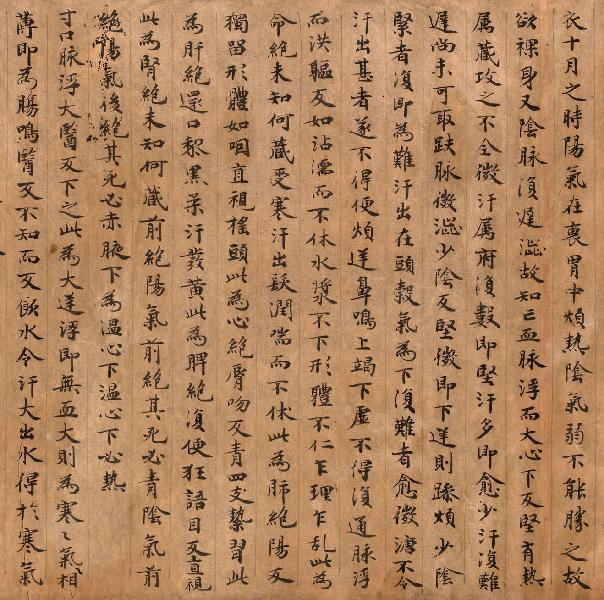 衣十月之時陽氣在裏胃中煩熱陰氣弱不能勝之故
欲裸身又陰脉復遲澁故知亡血脉浮而大心下反堅有熱
属藏攻之不令微汗属府復數即堅汗多即愈少汗復難
遲尚未可取趺脉微澁少陰反堅微即下逆則躁煩少陰
緊者復即為難汗出在頭穀氣為下復難者愈微溏不令
汗出甚者遂不得便煩逆鼻鳴上竭下虛不得復通脉浮
而洪軀反如沾濡而不休水漿不下形體不仁乍理乍亂此為
命絶未知何藏受寒汗出髮潤喘而不休此為肺絶陽反
獨留形體如咽直視揺頭此為心絶脣吻反青四支漐習此
為肝絶還口黎黑柔汗發黄此為脾絶復便狂語目反直視
此為腎絶未知何藏前絶陽氣前絶其死必青陰氣前
絶陽氣後絶其死必赤腋下為温心下温心下必熱
寸口脉浮大醫反下之此為大逆浮即無血大則為寒〻氣相
薄即為腸鳴醫反不知而反飲水令汗大出水得於寒氣